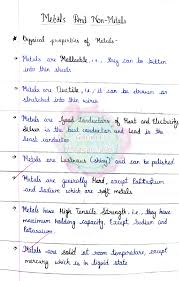 Metals And Non-Metals
* Physical properties of Metals-
* Metals are Malleable, i.e., they can be beaten
into thin sheets
* Metals are Ductile, i.e., it can be drawn or
stretched into thin wires
* Metals are Good Conductors of Heat and Electricity
Silver is the best conductor and Lead is the
least conductor
* Metals are Lustrous (shiny) and can be polished
* Metals are generally Hard, except Potassium
and Sodium which are soft metals
* Metals have High Tensile Strength, i.e., they have
maximum holding capacity, Except Sodium and
Potassium.
* Metals are solid at room temperature, except
mercury which is in liquid state